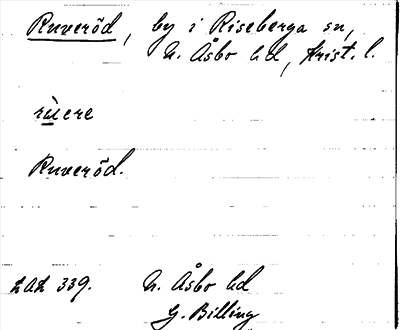 Ruveröd, by i Riseberga sn,
N. Åsbo hd, Krist. l.
rùere
Ruveröd.
LAL 339. N. Åsbo hd
G. Billing